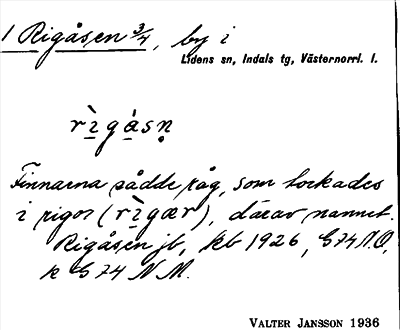 1 Rigåsen 3/4, by i
Lidens sn, Indals tg, Västernorrl. l.
rı̀gásn̥
Finnarna sådde råg, som torkades
i rigor (rı̀gær), därav namnet.
Rigåsen jb, kb 1926, G74 N.O,
k G74 N M.
VALTER JANSSON 1936